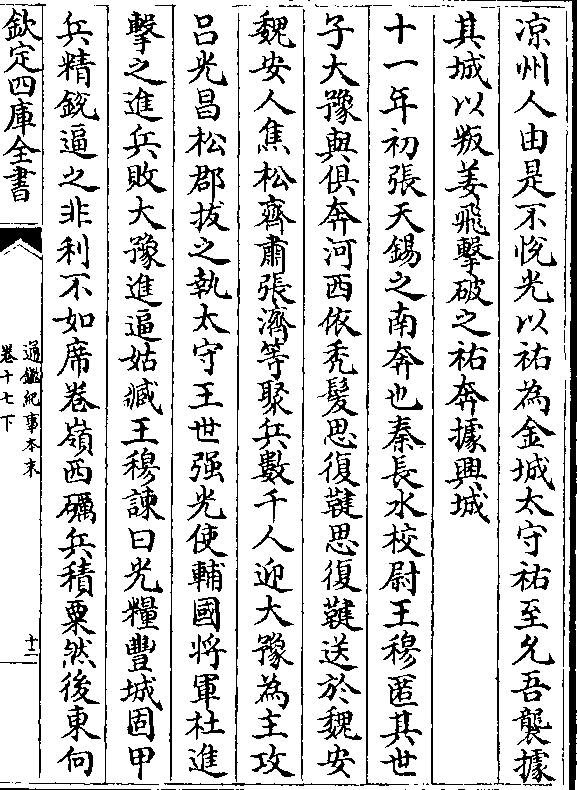 凉州人由是不悅光以祐為金城太守祐至允吾襲據
其城以叛姜飛擊破之祐奔據興城
十一年初張天錫之南奔也秦長水校尉王穆匿其世
子大豫與俱奔河西依禿髮思復鞬思復鞬送於魏安
魏安人焦松齊肅張濟等聚兵數千人迎大豫為主攻
吕光昌松郡拔之執太守王世强光使輔國將軍杜進
擊之進兵敗大豫進逼姑臧王穆諫曰光糧豐城固甲
兵精銳逼之非利不如席卷嶺西礪兵積粟然後東向
欽定四庫全書
通鑑紀事本末
卷十七下
十二